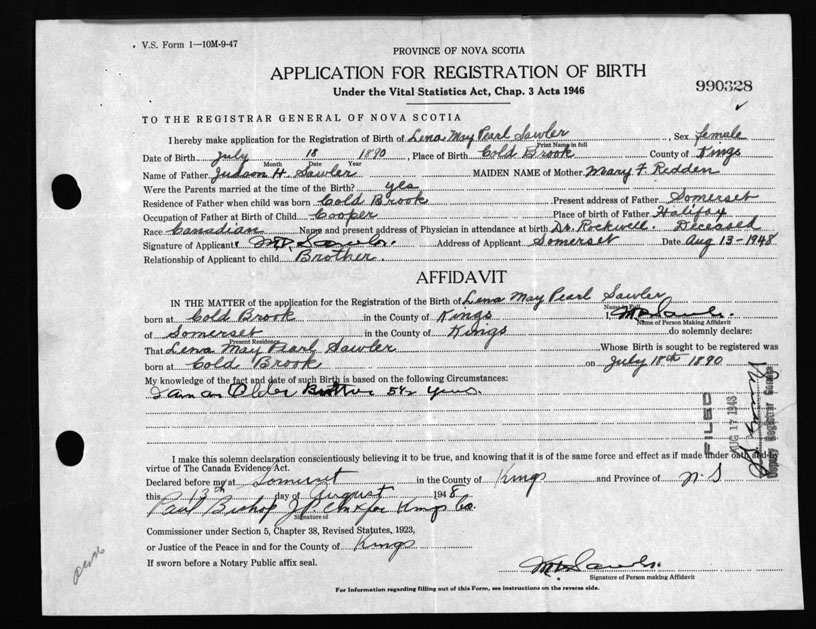 V.S. Form 1—10M-9-47
PROVINCE OF NOVA SCOTIA
APPLICATION FOR REGISTRATION OF BIRTH
990328
Under the Vital Statistics Act, Chap. 3 Acts 1946
TO THE REGISTRAR GENERAL OF NOVA SCOTIA
I hereby make application for the Registration of Birth of Lena May Pearl Sawler, Sex female
Print Name in full
Date of Birth July 18 1890, Place of Birth Cold Brook County of Kings
Month Date Year
Name of Father Judson H. Sawler MAIDEN NAME of Mother Mary F. Redden
Were the Parents married at the time of the Birth? yes
Residence of Father when child was born Cold Brook Present address of Father Somerset
Occupation of Father at Birth of Child Cooper Place of birth of Father Halifax
Race Canadian Name and present address of Physician in attendance at birth Dr. Rockwell. Deceased
Signature of Applicant Sawler. Address of Applicant Somerset Date Aug 13-1948
Relationship of Applicant to child Brother.
AFFIDAVIT
IN THE MATTER of the application for the Registration of the Birth of Lena May Pearl Sawler
born at Cold Brook in the County of Kings I, Sawler.
Name of Person Making Affidavit
of Somerset in the County of Kings do solemnly declare:
Present Residence
That Lena May Pearl Sawler Whose Birth is sought to be registered was
born at Cold Brook on July 18th 1890
My knowledge of the fact and date of such Birth is based on the following Circumstances:
I am an Older Brother 5½ yrs.
I make this solemn declaration conscientiously believing it to be true, and knowing that it is of the same force and effect as if made under oath and by
virtue of The Canada Evidence Act.
Declared before me at Somerset in the County of Kings and Province of N.S
this 13th day of August 1948
Paul Bishop J.P. Kings Co.
Signature of
Commissioner under Section 5, Chapter 38, Revised Statutes, 1923,
or Justice of the Peace in and for the County of Kings
If sworn before a Notary Public affix seal.
Sawler.
Signature of Person making Affidavit
For Information regarding filling out of this Form, see instructions on the reverse side.
FILED
AUG 17 1948
Deputy Registrar General